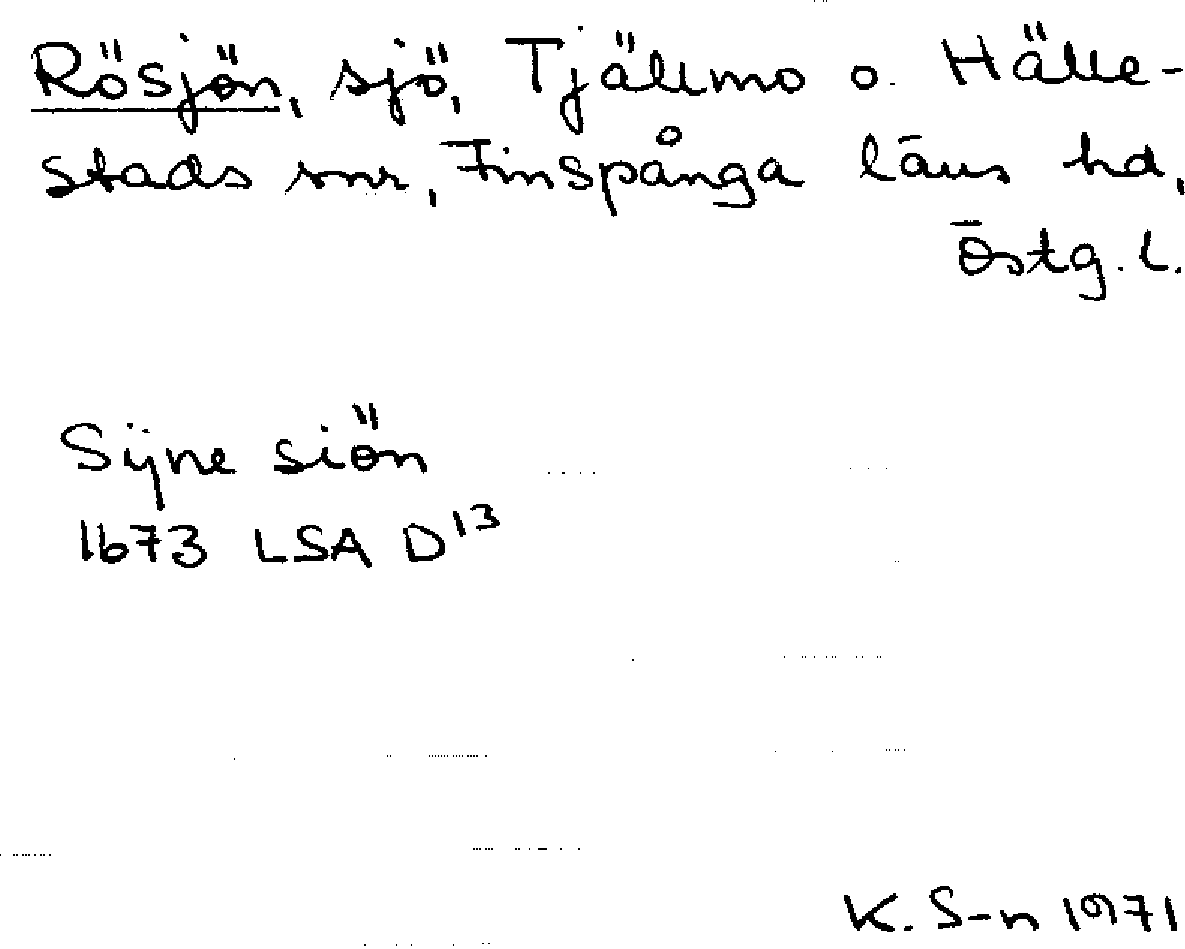 Rösjön, sjö, Tjällmo o. Hälle-
stads snr, Finspånga läns hd,
Östg. l.
Sÿne siön
1673 LSA D13
K. S-n 1971